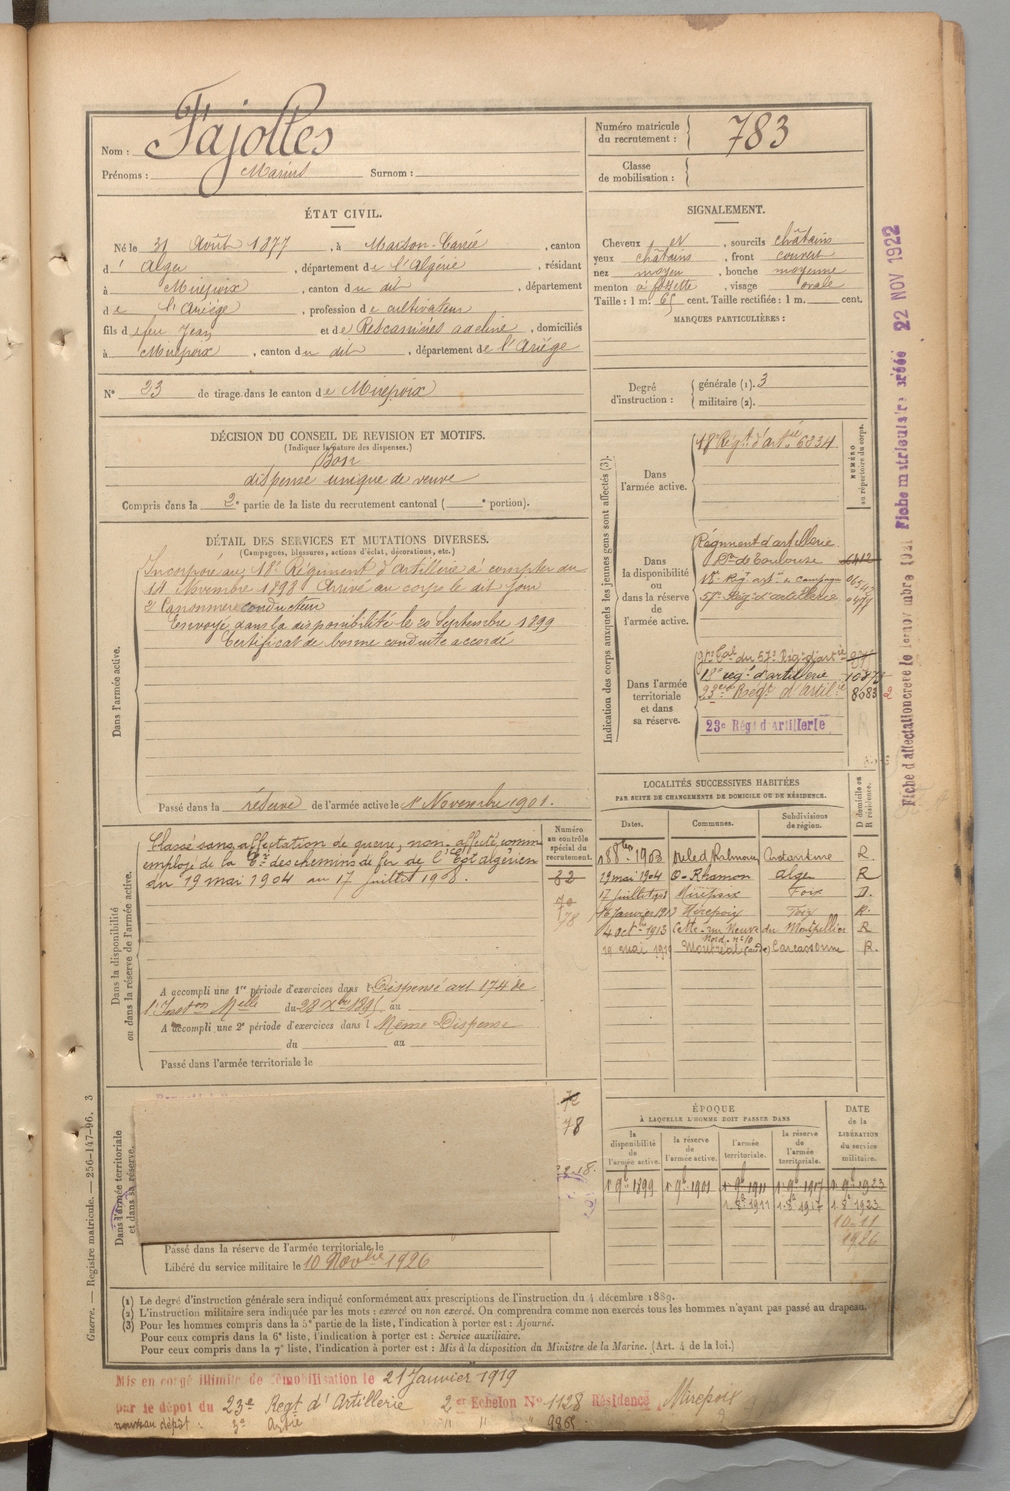 Nom : Fajolles
Prénoms : Marius Surnom :
Numéro matricule du recrutement : 783
Classe de mobilisation :
ÉTAT CIVIL.
Né le 31 Août 1877, à Maison-Carrée, canton
d' Alger, département de l'Algérie, résidant
à Mirepoix, canton du dit, département
de l'Ariège, profession de cultivateur
fils de feu Jean et de Rescanières adeline, domiciliés
à Mirepoix, canton du dit, département de l'Ariège
N° 23 de tirage dans le canton de Mirepoix
SIGNALEMENT.
Cheveux et sourcils châtains
yeux châtains, front couvert
nez moyen, bouche moyenne
menton à fossette, visage ovale
Taille : 1 m. 65 cent. Taille rectifiée : 1 m. cent.
MARQUES PARTICULIÈRES :
Degré d'instruction : générale (1). 3
militaire (2).
DÉCISION DU CONSEIL DE REVISION ET MOTIFS.
(Indiquer la nature des dispenses.)
Bon
dispense unique de veuve
Compris dans la 2e partie de la liste du recrutement cantonal ( e portion).
DÉTAIL DES SERVICES ET MUTATIONS DIVERSES.
(Campagnes, blessures, actions d'éclat, décorations, etc.)
Dans l'armée active.
Incorporé au 18e Régiment d'Artillerie à compter du
14 Novembre 1898 Arrivé au corps le dit jour
2e Canonnier conducteur
Envoyé dans la disponibilité le 20 Septembre 1899
Certificat de bonne conduite accordé
Passé dans la réserve de l'armée active le 1er Novembre 1901.
Indication des corps auxquels les jeunes gens sont affectés (3).
NUMÉRO au répertoire du corps.
Dans l'armée active.
18e Régt d'artie 6334
Dans la disponibilité ou dans la réserve de l'armée active.
Régiment d'artillerie
Don de Toulouse
18e Rég. artie de campagne
57e Rég. d'artillerie
Dans l'armée territoriale et dans sa réserve.
gpe tal du 57e Rég. d'artie
18e régt d'artillerie 10373
23eme Régt d'artie 8683 2
23e Régt d'Artillerie
Fiche d'affectation créée le 1er novembre 1921 Fiche matriculaire créée 22 NOV 1922
LOCALITÉS SUCCESSIVES HABITÉES
PAR SUITE DE CHANGEMENTS DE DOMICILE OU DE RÉSIDENCE.
Dates. Communes. Subdivisions de région. D domicile ou R résidence.
18 8bre 1903 Constantine R.
19 mai 1904 O-Rhamon Alger R
17 juillet 1908 Mirepoix Foix D.
16 janvier 1913 Mirepoix Foix R.
4 octbre 1913 Cette rue Neuve du Nord n° 10 Montpellier R
19 mai 1919 Montréal (Aude) Carcassonne R.
Dans la disponibilité ou dans la réserve de l'armée active.
Numéro au contrôle spécial du recrutement.
82
70
78
Classé sans affectation de guerre, non affecté, comme
employé de la Cie des chemins de fer de l'Est algérien
du 19 mai 1904 au 17 juillet 1908.
A accompli une 1re période d'exercices dans l Dispensé art 174 de
l'Inston Melle du 28 Xbre 1895 au
A accompli une 2e période d'exercices dans l Même Dispense
du au
Passé dans l'armée territoriale le
Dans l'armée territoriale et dans sa réserve.
72
78
Passé dans la réserve de l'armée territoriale le
Libéré du service militaire le 10 Novbre 1926
ÉPOQUE
À LAQUELLE L'HOMME DOIT PASSER DANS
la disponibilité de l'armée active. la réserve de l'armée active. l'armée territoriale. la réserve de l'armée territoriale.
DATE de la LIBÉRATION du service militaire.
1er 9b 1899 1er 9b 1901 1er 9b 1911 1er 9b 1917 1er 9b 1923
1. 8b 1911 1. 8b 1917 1. 8b 1923
10-11 1926
Guerre. — Registre matricule. — 256-147-96. 3
(1) Le degré d'instruction générale sera indiqué conformément aux prescriptions de l'instruction du 4 décembre 1889.
(2) L'instruction militaire sera indiquée par les mots : exercé ou non exercé. On comprendra comme non exercés tous les hommes n'ayant pas passé au drapeau.
(3) Pour les hommes compris dans la 5e partie de la liste, l'indication à porter est : Ajourné.
Pour ceux compris dans la 6e liste, l'indication à porter est : Service auxiliaire.
Pour ceux compris dans la 7e liste, l'indication à porter est : Mis à la disposition du Ministre de la Marine. (Art. 4 de la loi.)
Mis en congé illimité de démobilisation le 21 Janvier 1919
par le dépôt du 23e Regt d'Artillerie 2e Echelon N° 1128 Résidence Mirepoix
nouveau dépôt : 3e Artie " " " 9865